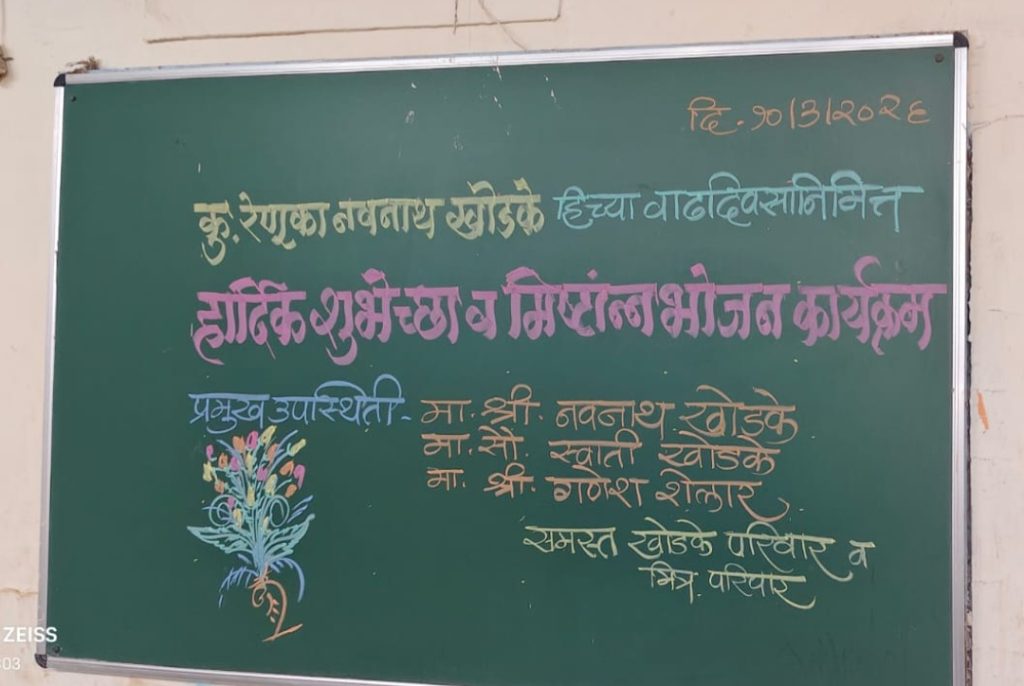 दि. १०/3/२०२६
कु. रेणूका नवनाथ खोडके हिच्या वाढदिवसानिमित्त
हार्दिक शुभेच्छा व मिष्टांन्न भोजन कार्यक्रम
प्रमुख उपस्थिती - मा. श्री. नवनाथ खोडके
मा. सौ. स्वाती खोडके
मा. श्री. गणेश शेलार
समस्त खोडके परिवार व
मित्र परिवार
ZEISS